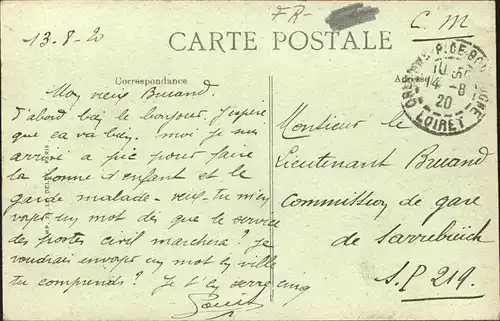 FR-
C. M
13.8-20
CARTE POSTALE
Correspondance
Adresse
ORLEANS R. DE BOURGOGNE
10 50
14 - 8
20
LOIRET
Mon vieux Bruand
D'abord bien le bonjour. J'espère
que ca va bien. moi je suis
arrivé a pic pour faire
la bonne d'enfant et le
garde malade - veux-tu m'en
voyer un mot dès que le service
des postes civil marchera? je
voudrais envoyer un mot en ville
tu comprends? Je t'en serre cinq
Louis
Monsieur le
Lieutenant Bruand
Committion de gare
de Sarrebrück
S.P 219.